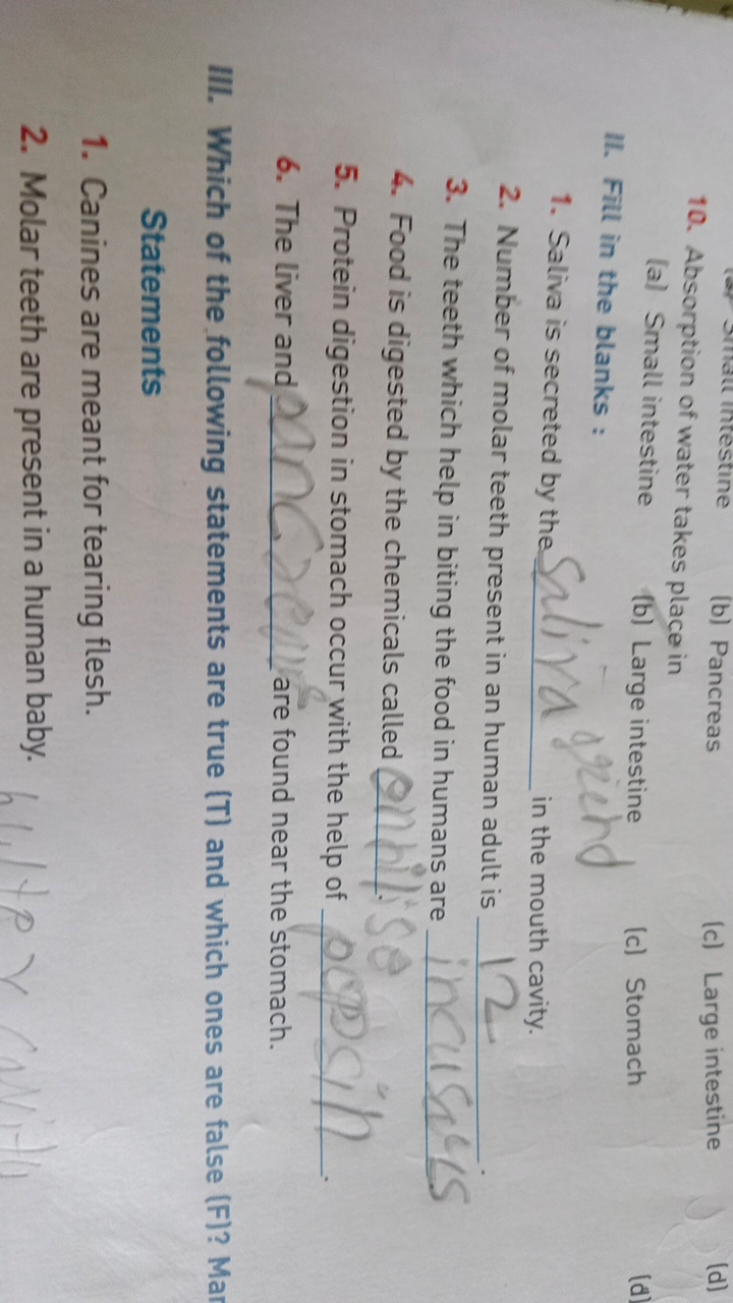 Small intestine (b) Pancreas (c) Large intestine (d)
10. Absorption of water takes place in
(a) Small intestine (b) Large intestine (c) Stomach (d)
II. Fill in the blanks :
1. Saliva is secreted by the Saliva in the mouth cavity.
2. Number of molar teeth present in an human adult is 12.
3. The teeth which help in biting the food in humans are
4. Food is digested by the chemicals called
5. Protein digestion in stomach occur with the help of pepsin.
6. The liver and are found near the stomach.
III. Which of the following statements are true (T) and which ones are false (F)? Mar
Statements
1. Canines are meant for tearing flesh.
2. Molar teeth are present in a human baby.